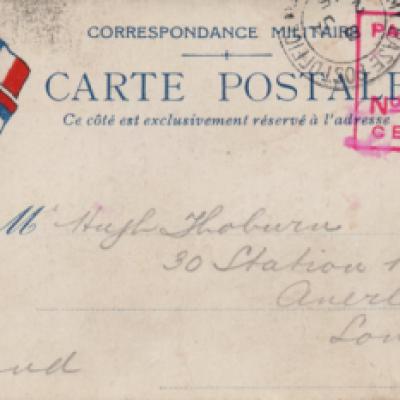 CORRESPONDANCE MILITAIRE
CARTE POSTALE
Ce côté est exclusivement réservé à l'adresse
PA
No
CE
M Hugh Thoburn
30 Station
Anerl
Lon